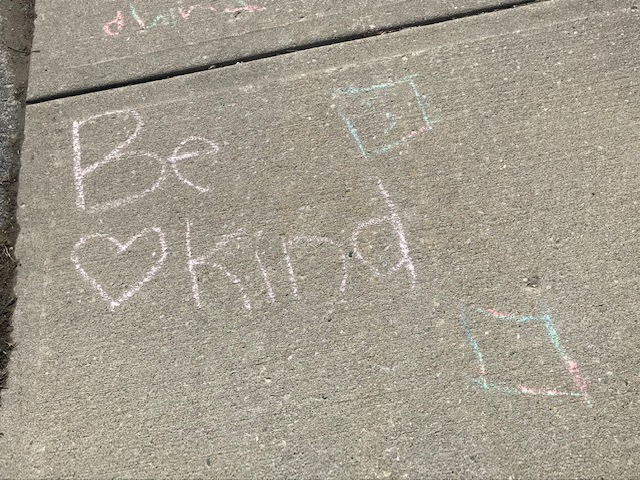 Be
♡ kind